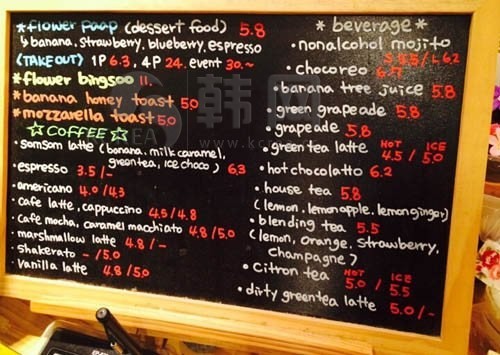 *flower paap (dessert food) 5.8
↳ banana, strawberry, blueberry, espresso
(TAKE OUT) 1P 6.3, 4P 24. event 30.~
*flower bingsoo 11.
*banana honey toast 5.0
*mozzarella toast 5.0
☆COFFEE☆
·somsom latte (banana, milk caramel,
greentea, ice choco) 6.3
·espresso 3.5/-
·americano 4.0/4.3
·cafe latte, cappuccino 4.5/4.8
·cafe mocha, caramel macchiato 4.8/5.0
·marshmallow latte 4.8/-
·shakerato -/5.0
·vanilla latte 4.8/5.0
*beverage*
·nonalcohol mojito
S 5.5/L 6.2
·chocoreo
·banana tree juice 5.8
·green grapeade 5.8
·grapeade 5.8
·greentea latte HOT 4.5 / ICE 5.0
·hotchocolatto 6.2
·house tea 5.8
(lemon, lemonapple, lemonginger)
·blending tea 5.5
(lemon, orange, strawberry,
champagne)
·citron tea HOT 5.0 / ICE 5.5
·dirty greentea latte 5.0/-
韩网